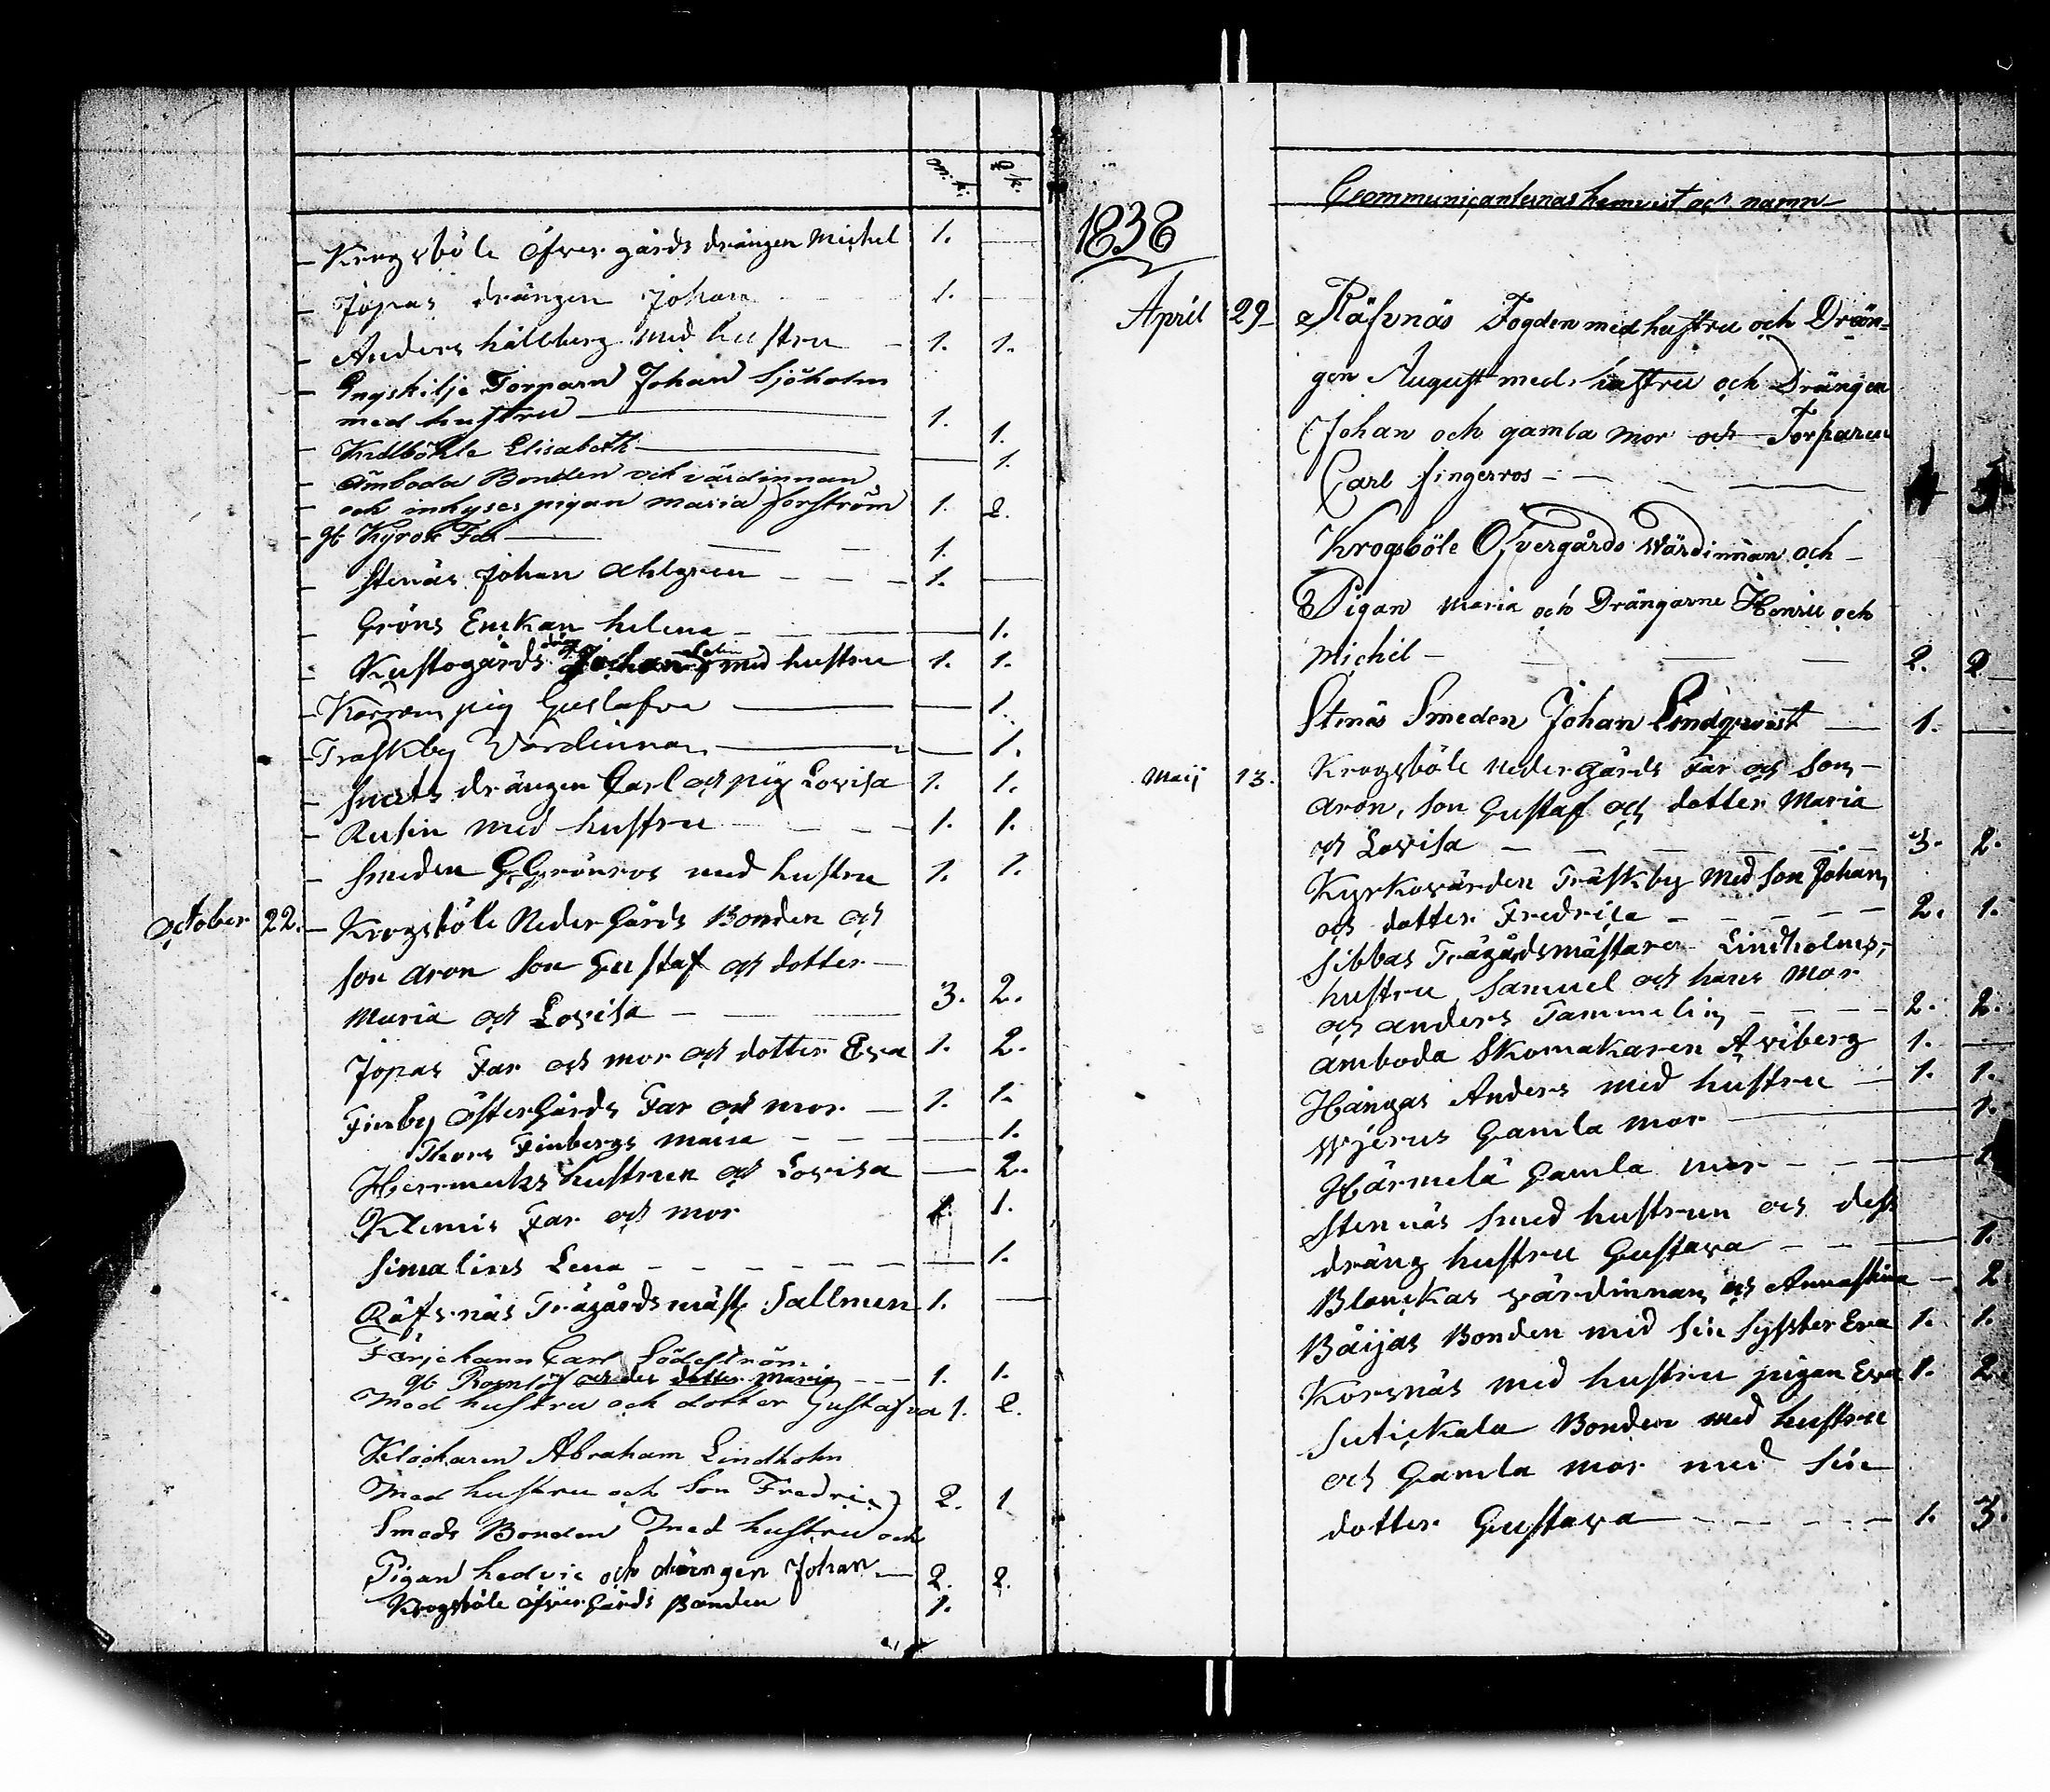 m. k. q. k.
Krogsböle öfvergårds drängen Michel 1. —
Jopas drängen Johan 1. —
Anders hällberg med hustru 1. 1.
Engskilje Torparn Johan Sjöholm
med hustru 1. 1.
Kullböhle Elisabeth — 1.
Ämboda Bonden och värdinnan
och inhyses pigan maria forsström 1. 2.
Far 1.
Stenäs Johan Ahlgren 1. —
Gröns Enckan helena — 1.
Kustogårds dräng Johan med hustru 1. 1.
pig Gustafva — 1.
Traskby Värdinnan — 1.
Smeds drängen Carl och pig Lovisa 1. 1.
Rusin med hustru 1. 1.
Smeden G. Grönros med hustru 1. 1.
October 22. Krogsböle Neder Gårds Bonden och
son aron son Gustaf och dotter
Maria och Lovisa 3. 2.
Jopas Far och mor och dotter Eva 1. 2.
Finby öster Gårds Far och mor 1. 1.
Thors Finbergs maria — 1.
Hermuks hustrun och Lovisa — 2.
Klemis Far och mor 1. 1.
Simalins Lena — 1.
Räfsnäs Trägårdsmäst Sallmen 1. —
Färjekarn Carl Söderström
och des dotter Maria 1. 1.
Med hustru och dotter Gustafva 1. 2.
Klockaren Abraham Lindholm
Med hustru och Son Fredric 2. 1
Smeds Bonden Med hustru och
Pigan hedvic och drängen Johan 2. 2.
Krogsböle öfver Gårds Bonden 1.
Communicanternas hemvist och namn
1838
April 29 Räfsnäs Fogden med hustru och Drän=
gen August med hustru och Drängen
Johan och gamla mor och Torparen
Carl fingerros 4 3
Krogsböle Öfvergårds Wärdinnan och
Pigan Maria och Drängarne Henric och
Michel 2. 2
Stenäs Smeden Johan Lindqwist 1. —
Maij 13. Krogsböle neder gårds Far och Son
aron, son Gustaf och dotter Maria
och Lovisa 3. 2.
Kyrkovärden Träskby Med Son Johan
och dotter Fredrica 2. 1.
Sibbas Trägårdsmästaren Lindholms
hustru Samuel och hans Mor
och anders Tammelin 2. 2.
amboda Skomakaren Aviberg 1. —
Hängas Anders med hustru 1. 1.
Wjerus Gamla mor 1.
Härmelä Gamla mor 1
Stennäs Smed hustrun och dess
dräng hustru Gustava 1.
Blanckas värdinnan och Annastina 2
Båijas Bonden med sin Syster Eva 1. 1.
Korsnäs med hustru pigan Eva 1. 2.
Sutickala Bonden med hustru
och Gamla mor med sin
dotter Gustava 1. 3.